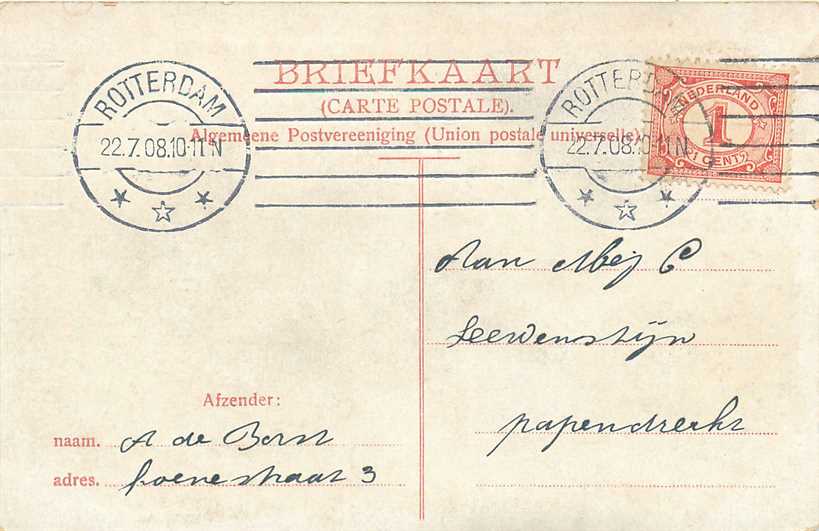 BRIEFKAART
(CARTE POSTALE).
Algemeene Postvereeniging (Union postale universelle).
ROTTERDAM
22.7.08.10-11N
ROTTERD
22.7.08.10-11N
NEDERLAND
1
CENT
Aan Mej C
Leewenstijn
papendrecht
Afzender:
naam. A de Borst
adres. straat 3